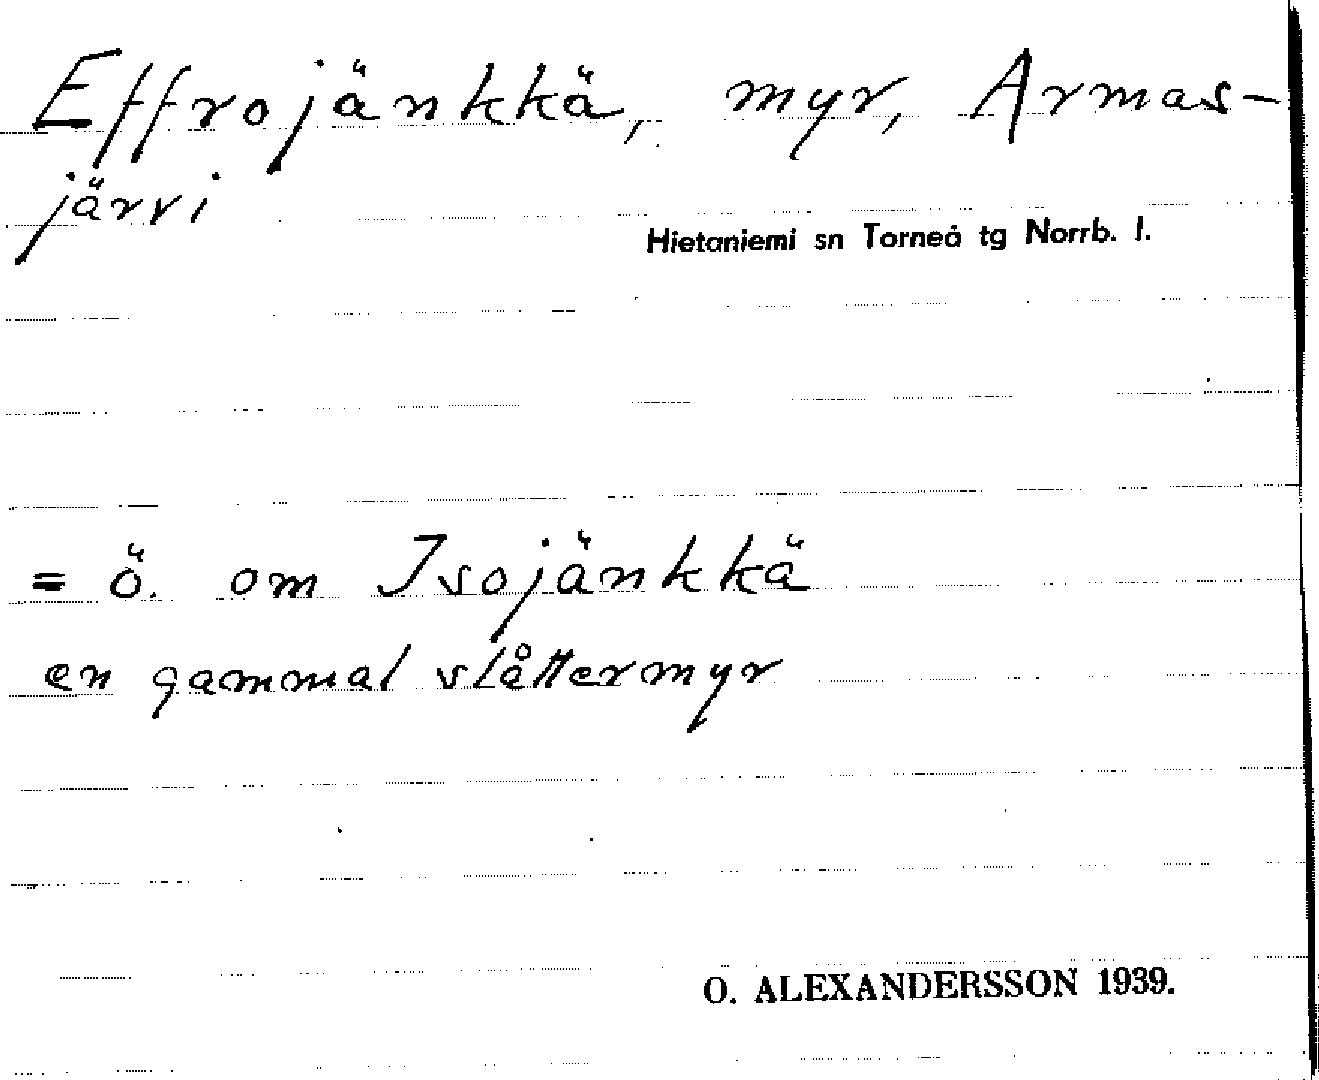 Effrojänkkä, myr, Armas-
järvi
Hietaniemi sn Torneå tg Norrb. l.
= ö. om Isojänkkä
en gammal slåttermyr
O. ALEXANDERSSON 1939.